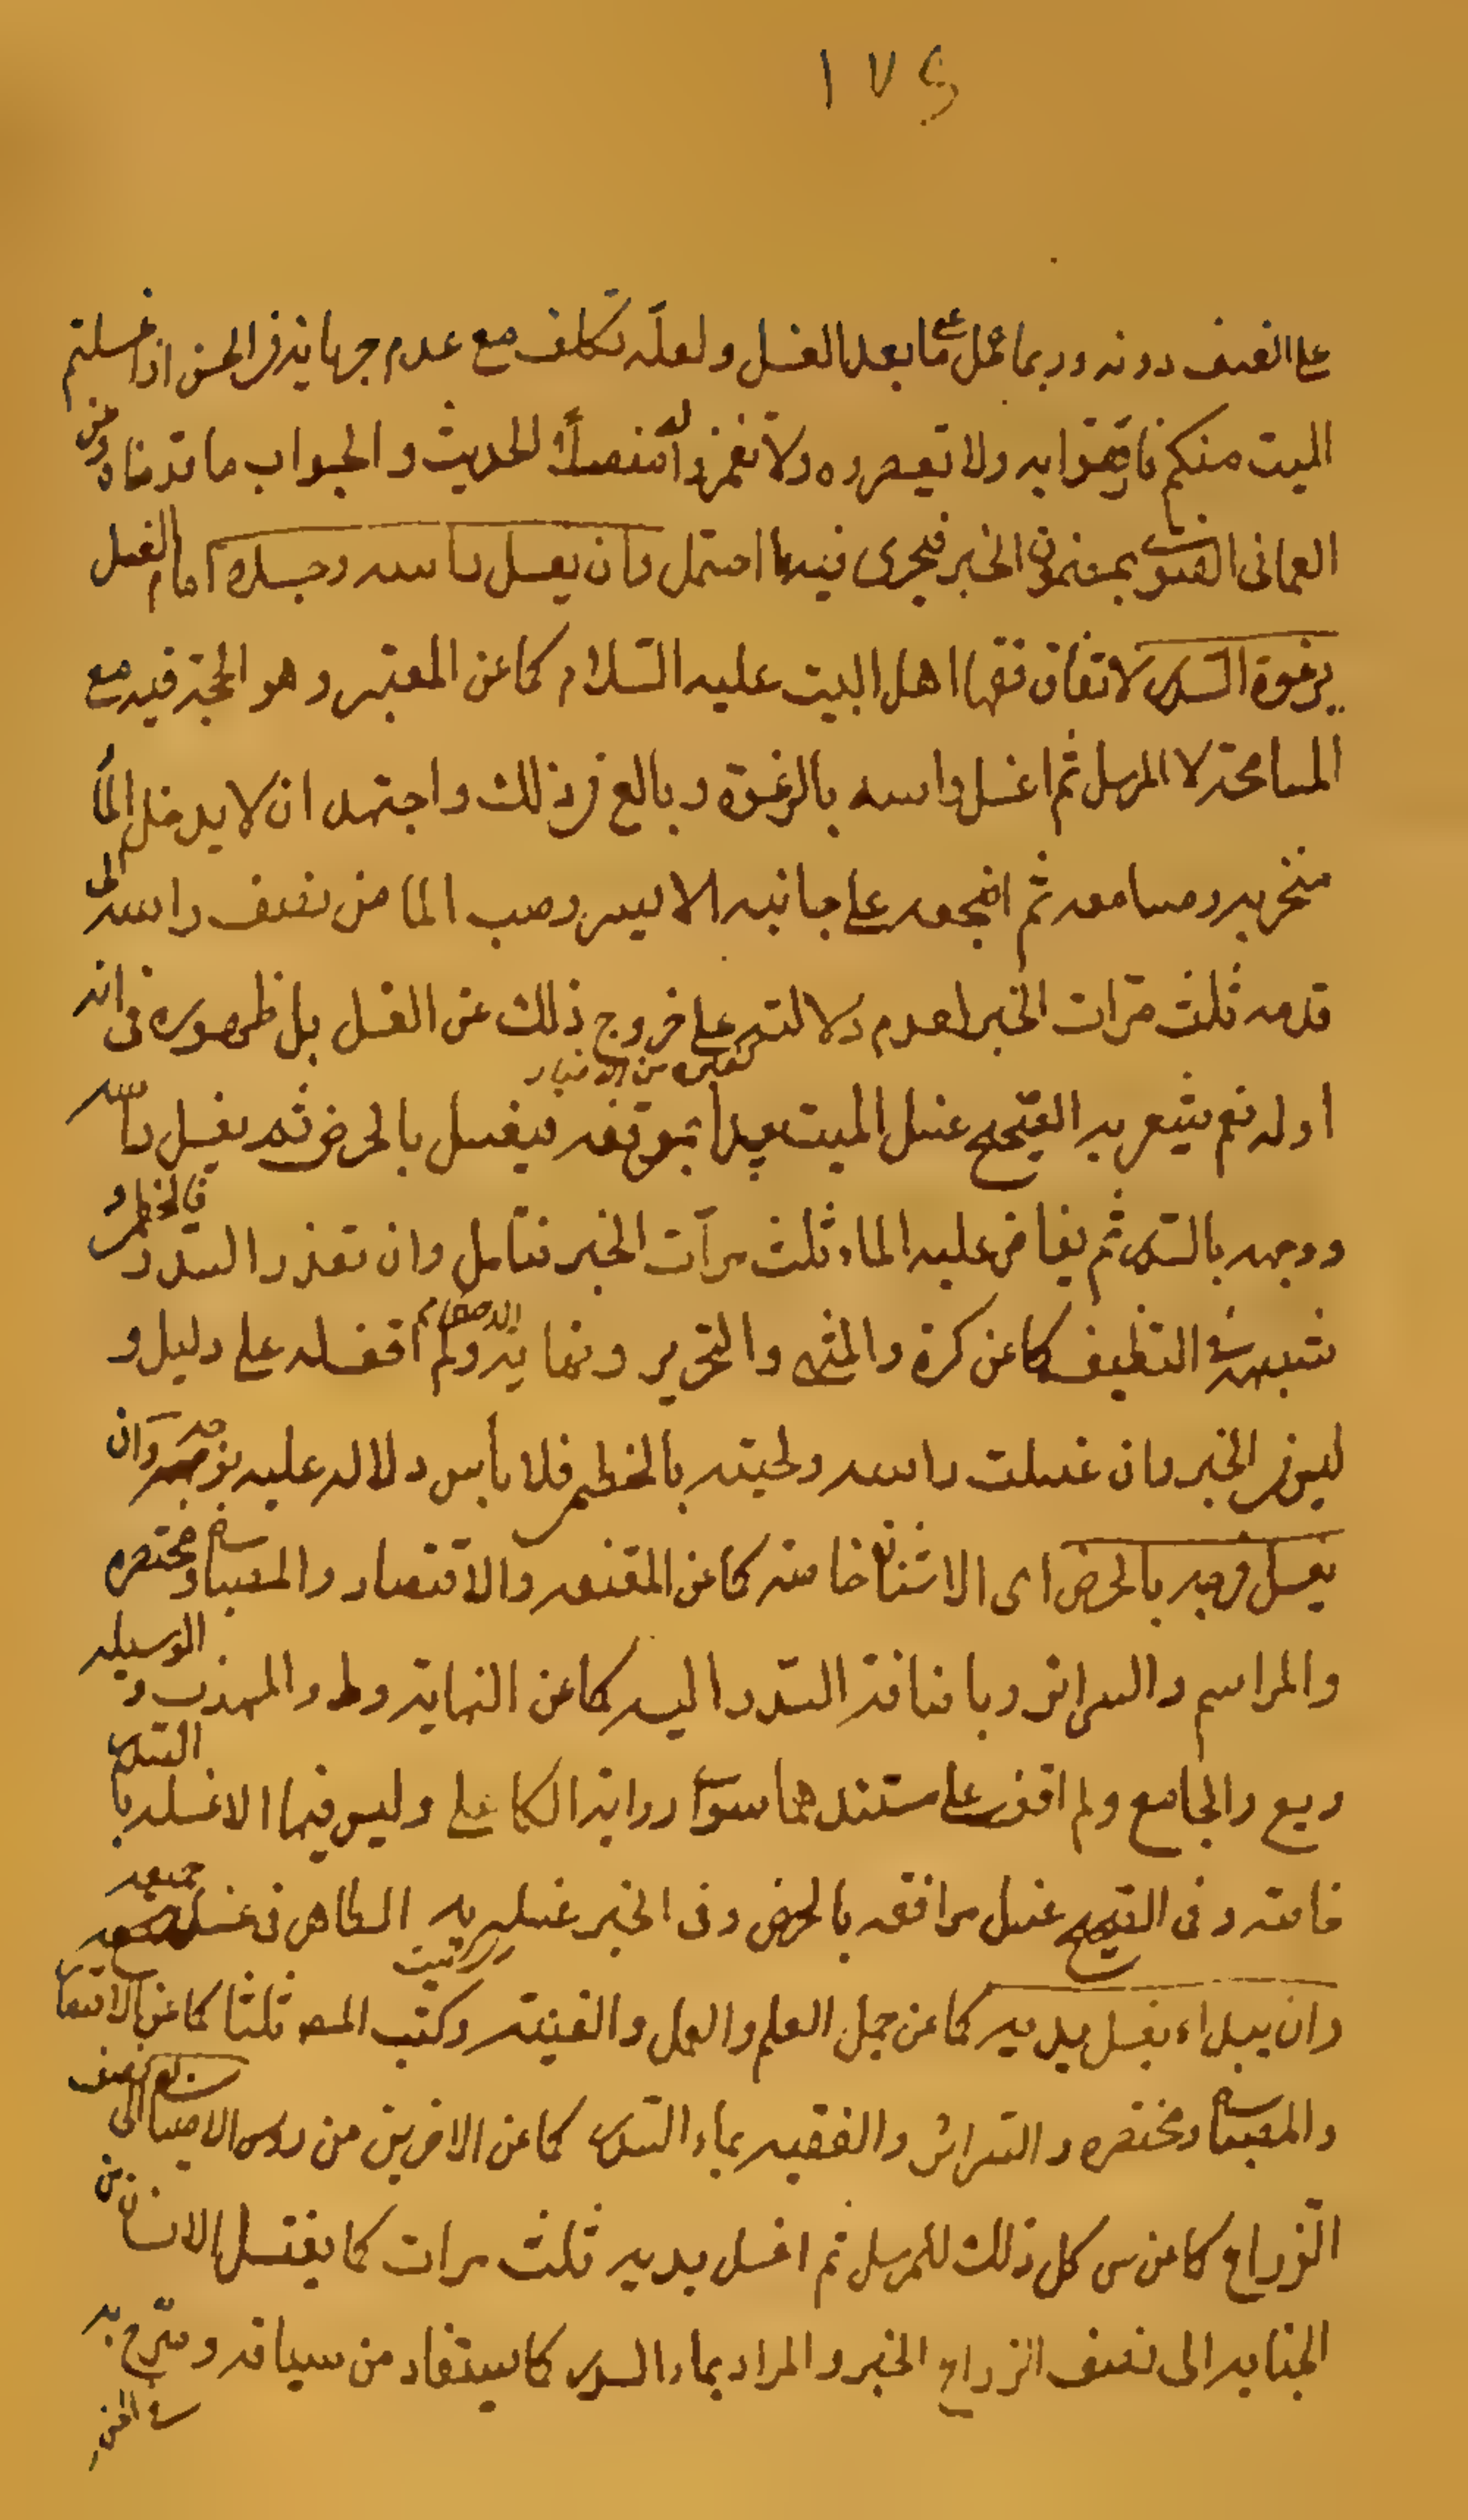 ١٧٥
على العنف دونه وربما حمل على ما بعد الغسل ولعله تكلف مع عدم جريانه في الحسن اذا غسلتم
الميت منكم فارفقوا به ولا تعصروه ولا تغمزوا له مفصلا الحديث والجواب ما قدمناه وعن
العماني الفتوى بمضمون الخبر فيجري فيها احتمل وان يغسل راسه وجسده امام الغسل
برغوة السدر لاتفاق فقهاء اهل البيت عليه السلام كما عن المعتبر وهو الحجة فيه مع
المسامحة لا المرسل ثم اغسل راسه بالرغوة وبالغ في ذلك واجتهد ان لا يدخل الماء
منخريه ومسامعه ثم اضجعه على جانبه الايسر وصب الماء من نصف راسه الى
قدمه ثلث مرات الخبر لعدم دلالته على خروج ذلك عن الغسل بل ظهوره في انه
كغيره من الاخبار
اوله نعم يشعر به الصحيح غسل الميت يبدا بمرافقه فيغسل بالحرض ثم يغسل راسه
ووجهه بالسدر ثم يفاض عليه الماء ثلث مرات الخبر فتامل وان تعذر السدر فالخطمي و
شبهه في التنظيف كما عن كرة والمنتهى والتحرير ونهاية الاحكام ولم اقف له على دليل و
ليس في الخبر وان غسلت راسه ولحيته بالخطمي فلا باس دلاله عليه بوجه وان
يغسل فرجه بالحرض اى الاشنان خاصة كما عن المقنعه والاقتصاد والمصباح ومختصره
والمراسم والسرائر وباضافة السدر اليه كما عن النهاية وط والمهذب والوسيله
ويع والجامع ولم اقف على مستندهما سوى رواية الكاهلى وليس فيها الا غسله بالسدر
خاصة وفى الصحيح غسل مرافقه بالحرض وفى الخبر غسل يديه الظاهر فى غسله جميعه
وان يبداء بغسل يديه كما عن جمل العلم والعمل والغنيته وكتب المص ثلثا كما عن الاقتصاد
والمصباح ومختصره والسرائر والفقيه بماء السدر كما عن الاخرين من روس الاصابع الى نصف
الذراع كما عن س كل ذلك للمرسل ثم اغسل يديه ثلث مرات كما يغتسل الانسان من
الجنابه الى نصف الذراع الخبر والمراد بماء السدر كما يستفاد من سياقه وصرح به
فى الخبر